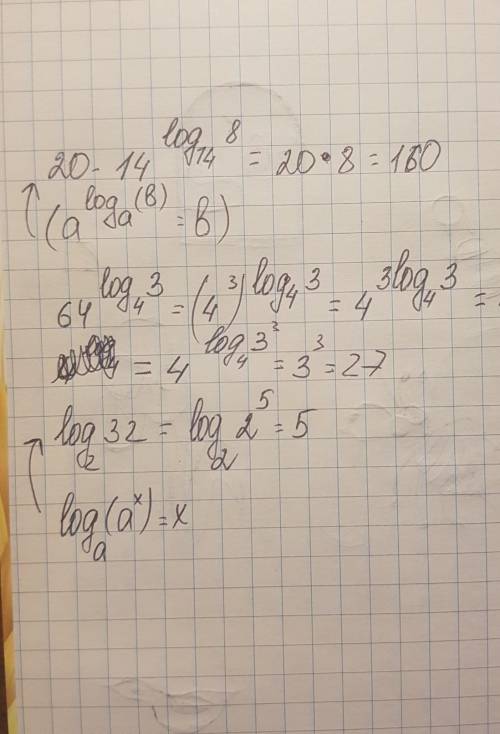 20 · 14^{log_{14} 8} = 20 · 8 = 160
(a^{log_a (B)} = B)
64^{log_4 3} = (4^3)^{log_4 3} = 4^{3 log_4 3} =
= 4^{log_4 3^3} = 3^3 = 27
log_2 32 = log_2 2^5 = 5
log_a (a^x) = x